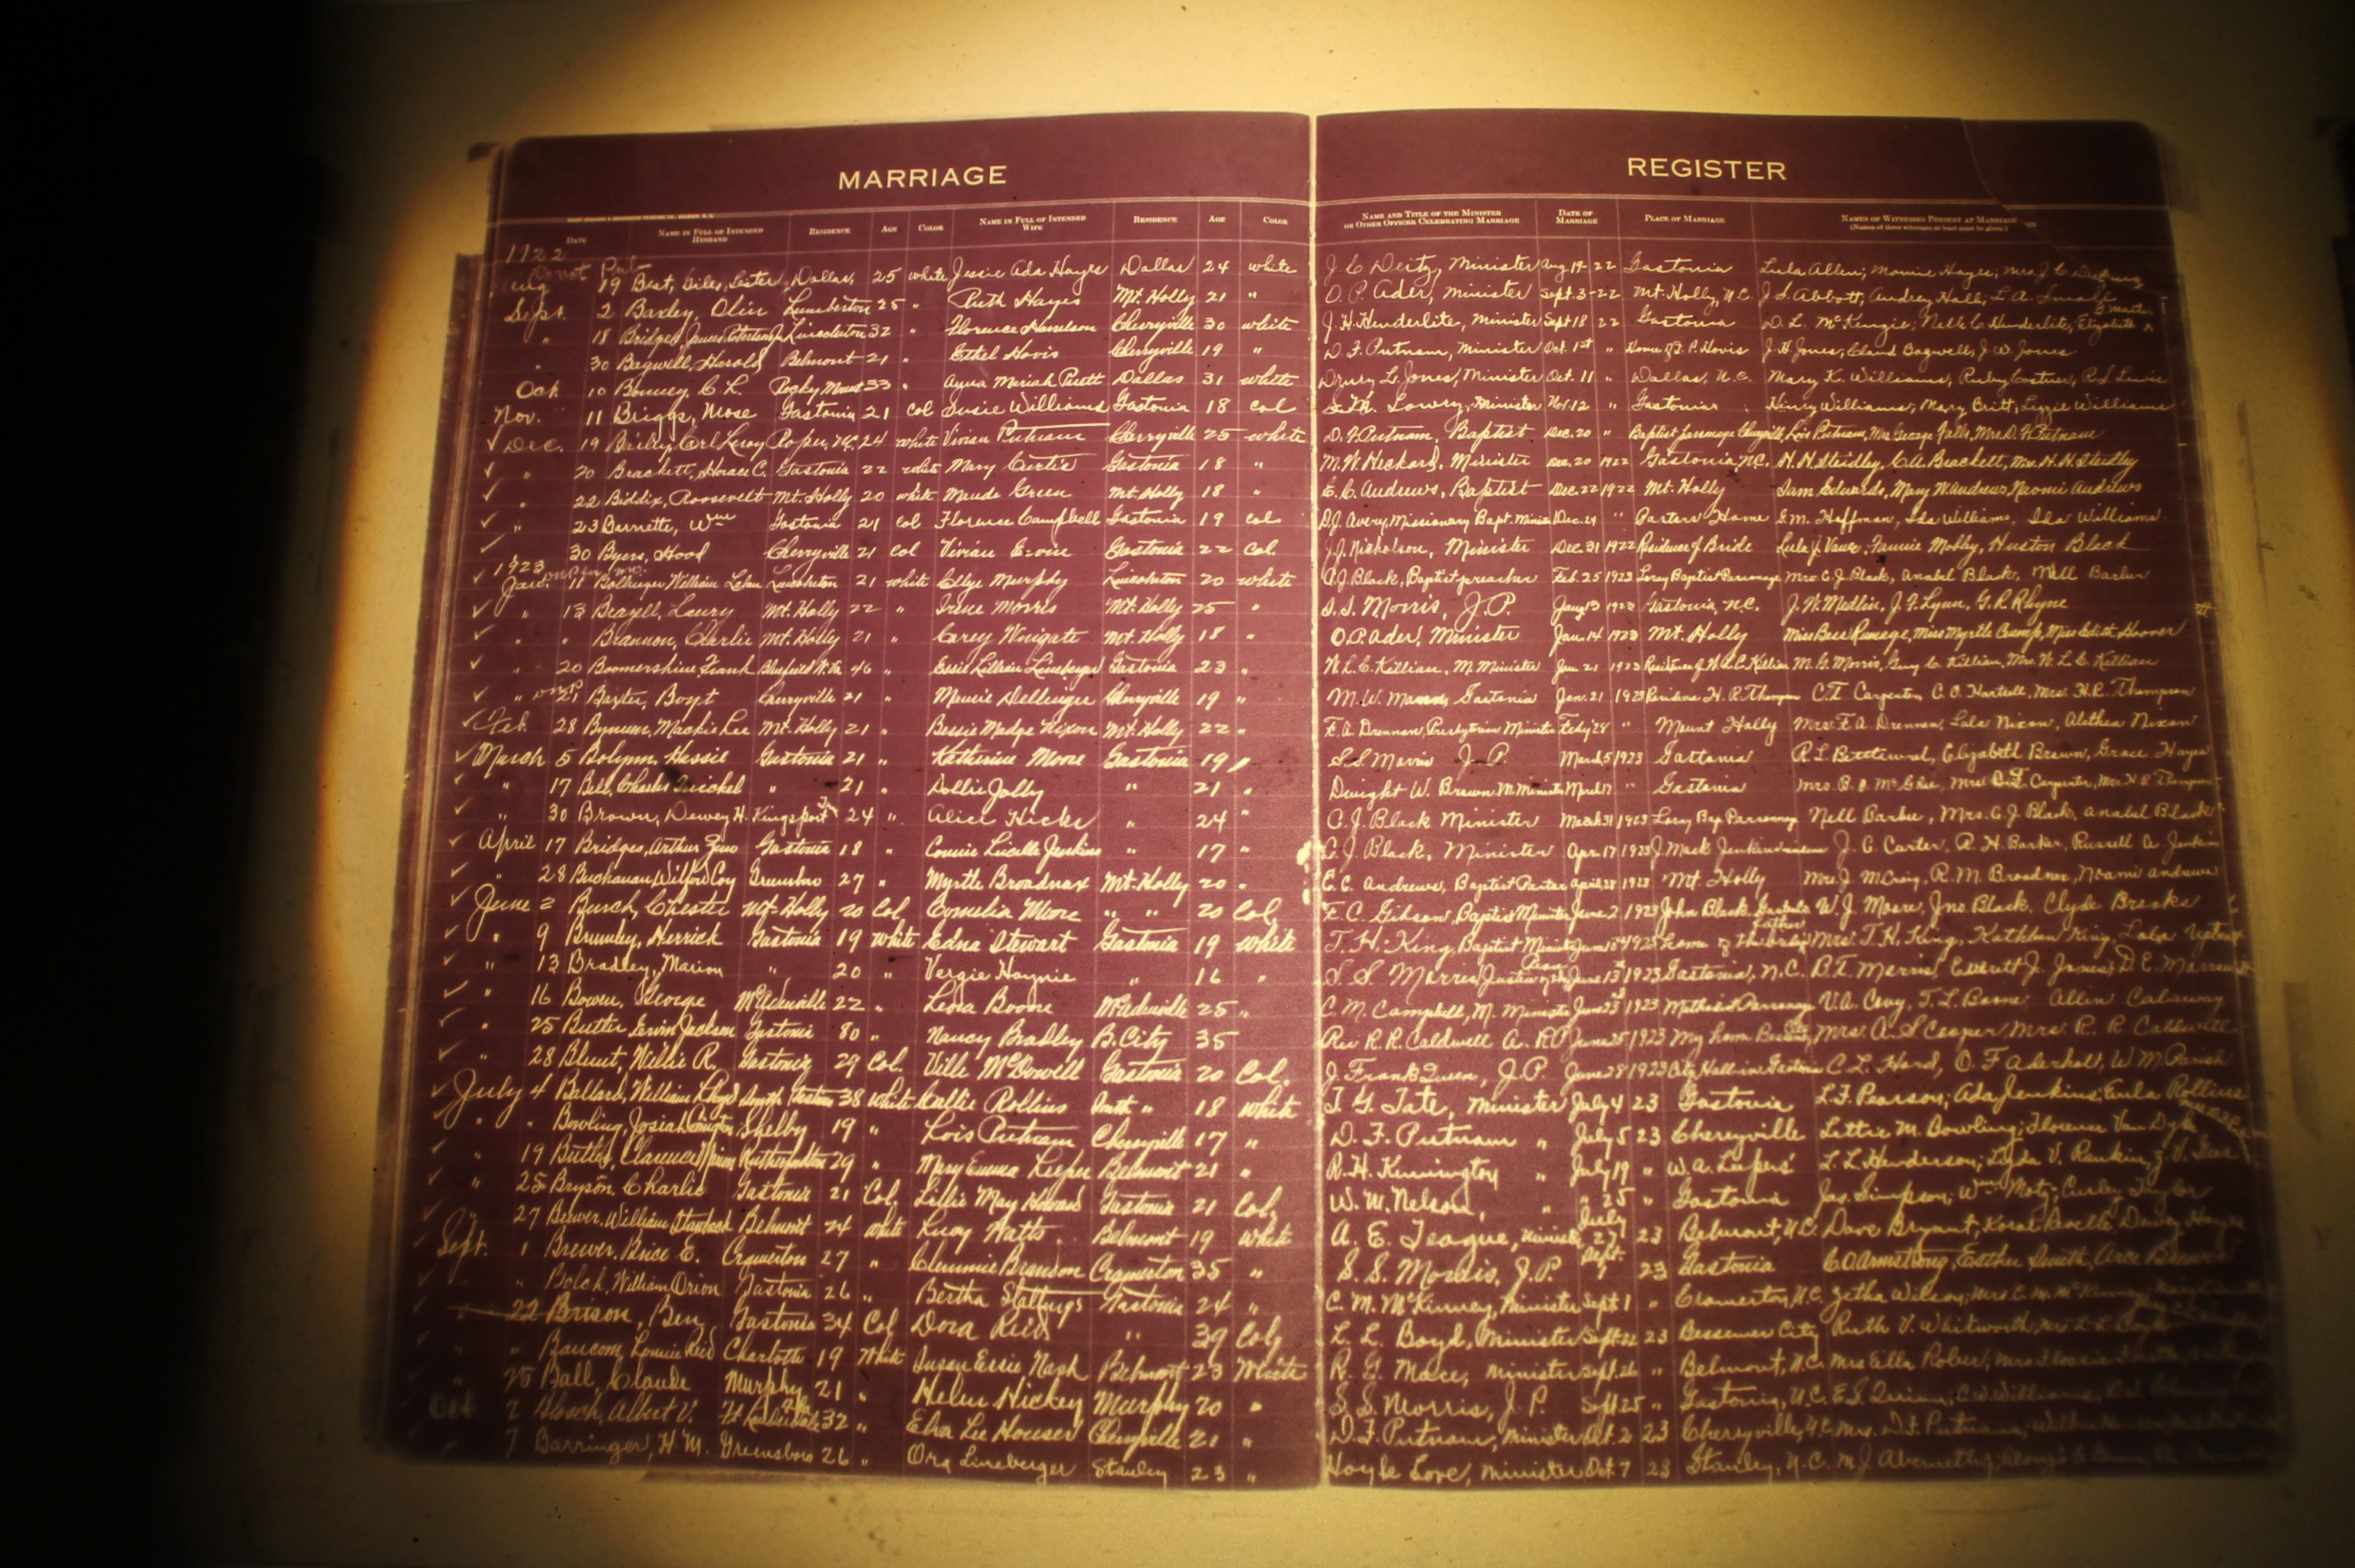 MARRIAGE REGISTER
DATE NAME IN FULL OF INTENDED HUSBAND RESIDENCE AGE COLOR NAME IN FULL OF INTENDED WIFE RESIDENCE AGE COLOR NAME AND TITLE OF THE MINISTER OR OTHER OFFICER CELEBRATING MARRIAGE DATE OF MARRIAGE PLACE OF MARRIAGE NAMES OF WITNESSES PRESENT AT MARRIAGE (Names of three witnesses at least must be given.)
1922
Aug 19 Best, Giles, Lester Dallas, 25 white Jessie Ada Hayes Dallas 24 white J. C Deitz, Minister Aug 19- 22 Gastonia Lula Allen; Mamie Hayes; Mrs. J. C.
Sept. 2 Baxley, Olin Lumberton 25 " Ruth Hayes Mt. Holly 21 " O. P. Ader, Minister Sept. 3-22 Mt. Holly, N.C. J. S. Abbott; Audrey Hall; L. A. Small
" 18 Bridges, James Lincolnton 32 " Florence Cherryville 30 white J. H. Henderlite, Minister Sept 18 22 Gastonia D. L. McKenzie; Nell C Henderlite, Elizabeth
" 30 Bagwell, Harold Belmont 21 " Ethel Hovis Cherryville 19 " D. F. Putnam, Minister Oct. 1st " Home of P. Hovis J. H Jones; Claud Bagwell; J. W. Jones
Oct. 10 Bonney, C. L. Rocky Mount 33 " Dallas 31 white Drury L. Jones, Minister Oct. 11 " Dallas, N.C. Mary K. Williams, Ruby Costner, R S Lewis
Nov. 11 Briggs, Mose Gastonia 21 col Susie Williams Gastonia 18 col Lowry, Minister Nov. 12 " Gastonia Henry Williams; Mary Britt; Lizzie Williams
Dec. 19 Carl Leroy N.C. 24 white Vivian Putnam Cherryville 25 white D. F. Putnam, Baptist Dec. 20 " Baptist Parsonage Cherryville Lois Putnam, Mrs George Falls, Mrs D. F. Putnam
" 20 Brackett, Horace C. Gastonia 22 white Mary Curtis Gastonia 18 " M. W. Heckard, Minister Dec. 20 1922 Gastonia, N.C. H. H. Steidley, C. A. Brackett, Mrs. H. H. Steidley
" 22 Biddix, Roosevelt Mt. Holly 20 white Maude Green Mt. Holly 18 " E. C. Andrews, Baptist Dec. 22 1922 Mt. Holly Sam Edwards, Mary W. Andrews, Naomi Andrews
" 23 Barnette, Wm Gastonia 21 col Florence Campbell Gastonia 19 col D. J. Avery, Missionary Bapt. Minister Dec. 24 " Pastors Home G. M. Hoffman, Ida Williams, Ida Williams
30 Byers, Hood Cherryville 21 col Vivian Ervin Gastonia 22 col. J. J. Nicholson, Minister Dec. 31 1922 Residence of Bride Lula J. Vance, Fannie Mobley, Huston Black
1923
Jan. 11 Bollinger William Lincolnton 21 white Murphy Lincolnton 20 white C. J. Black, Baptist preacher Feb. 25 1923 Loray Baptist Parsonage Mrs C. J. Black, Anabel Black, Nell Barbee
" 13 Laury Mt. Holly 22 " Irene Morris Mt. Holly 25 " S. S. Morris, J. P. Jany 13 1923 Gastonia, N.C. J. W. Medlin, J. F. Lynn, G. R. Rhyne
" " Brannon, Charlie Mt. Holly 21 " Carey Wingate Mt. Holly 18 " O. P. Ader, Minister Jan. 14 1923 Mt. Holly Miss Bess Rumage, Miss Myrtle Crump, Miss Edith Hoover
" 20 Boomershine, Frank Bluefield W. Va 46 " Essie Lillian Lineberger Gastonia 23 " W. L. C. Killian, M. Minister Jan 21 1923 Residence of W. L. C. Killian M. G. Morris, C. Killian, Mrs. W. L. C. Killian
" 21 Baxter, Boyt Cherryville 21 " Mamie Dellinger Cherryville 19 " M. W. Gastonia Jan. 21 1923 H. R. Thompson C. T. Carpenter, C. O. Hartsell, Mrs. H. R. Thompson
Feb. 28 Bynum, Mackie Lee Mt. Holly 21 " Bessie Madge Nixon Mt. Holly 22 " F. A. Drennan, Presbyterian Minister Feby 28 " Mount Holly Mrs. F. A. Drennan, Lola Nixon, Alethea Nixon
March 5 Hassie Gastonia 21 " Katherine Moore Gastonia 19 " S. S Morris J. P. March 5 1923 Gastonia R. L. Elizabeth Brown, Grace Hayes
" 17 Bell, Charles " 21 " Dollie Jolly " 21 " Dwight W. Brown M. Minister March 17 " Gastonia Mrs. B. O. McGhee, Mrs C. T. Carpenter, Mrs. H. R. Thompson
" 30 Brown, Dewey H. Kingsport 24 " Alice Hicks " 24 " C. J. Black Minister March 31 1923 Loray Bap Parsonage Nell Barbee, Mrs. C. J. Black, Anabel Black
April 17 Bridges, Arthur Gastonia 18 " Connie Lucille Jenkins " 17 " C. J. Black, Minister Apr. 17 1923 J. Mack Jenkins J. C. Carter, R. H. Barker, Russell A. Jenkins
" 28 Buchanan, Wilford Coy Greensboro 27 " Myrtle Broadnax Mt. Holly 20 " E. C. Andrews, Baptist Pastor April 28 1923 Mt. Holly Mrs. J. McCraig, R. M. Broadnax, Noami Andrews
June 2 Burch, Chester Mt. Holly 20 Col. Cornelia Moore " " 20 Col. F. C. Gibson, Baptist Minister June 2, 1923 John Black, W. J. Moore, Jno Black, Clyde Breaks
" 9 Brumley, Herrick Gastonia 19 white Edna Stewart Gastonia 19 white T. H. King, Baptist Minister June 1923 home of the bride Father Mrs. T. H. King, Kathleen King, Lola
" 13 Bradley, Marion " 20 " Vergie Haynie " 16 " S. S. Morris, Justice of the Peace June 13 1923 Gastonia, N.C. B. T. Morris, Everett J. Jones, D. E.
" 16 Bowen, George McAdenville 22 " Leora Boone McAdenville 25 " C. M. Campbell, M. Minister June 23 1923 Methodist Parsonage V. A. T. L. Boone Allen Calaway
" 25 Butler Ervin Jackson Gastonia 80 " Nancy Bradley B. City 35 Rev R. R. Caldwell June 25 1923 My home Mrs. A. S Cooper Mrs. R. R Caldwell
" 28 Blunt, Willie R. Gastonia 29 Col. Ville McDowell Gastonia 20 Col. J. Frank J. P. June 28 1923 City Hall in Gastonia C. L. Hord, O. F Aderholt, W M Parish
July 4 Ballard, William South Gastonia 38 white Callie Rollins South " 18 white T. G. Tate, Minister July 4 23 Gastonia L. F. Pearson; Ada Jenkins; Eula Rollins
" " Bowling, Josiah Shelby 19 " Lois Putnam Cherryville 17 " D. F. Putnam " July 5 23 Cherryville Lettie M. Bowling; Florence Van Dyke
" 19 Butler, Clarence Rutherfordton 29 " Mary Emma Leeper Belmont 21 " R. H. " July 19 " W. A. Leepers' L. L. Henderson; Lyda V. Rankin;
" 25 Bryson, Charlie Gastonia 21 Col. Lillie May Howard Gastonia 21 Col. W. M. Nelson, " " 25 " Gastonia Jas. Simpson; Wm Curley Taylor
" 27 Brewer, William Belmont 24 white Lucy Watts Belmont 19 white A. E. Teague, Minister July 27 23 Belmont, N.C. Dave Bryant, Dewey Hayes
Sept. 1 Brewer, Brice E. Cramerton 27 " Clemmie Brandon Cramerton 35 " S. S. Morris, J. P. Sept. 1 23 Gastonia C. O Armstrong, Esther Smith,
" " Bolch, William Orion Gastonia 26 " Bertha Stallings Gastonia 24 " C. M. McKinney, Minister Sept 1 " Cramerton, N.C. Zetha Wilson; Mrs. C. M. McKinney;
22 Brison, Ben Gastonia 34 Col Dora Reid " 39 Col. L. L. Boyd, Minister Sept. 22 23 Bessemer City Ruth V. Whitworth,
" Baucom, Lonnie Reid Charlotte 19 White Susan Essie Nash Belmont 23 White R. G. Mace, Minister Sept. 26 " Belmont, N.C. Mrs Ella
25 Ball, Claude Murphy 21 " Helen Hickey Murphy 20 " S. S. Morris, J. P. Sept 25 " Gastonia, N.C. E. S. Quinn; C. W. Williams;
Oct. 2 Albert V. Ft Lauderdale 32 " Elva Lee Houser Cherryville 21 " D. F. Putnam, Minister Oct. 2 23 Cherryville, N.C. Mrs. D. F. Putnam;
7 Barringer, H. M. Greensboro 26 " Ora Lineberger Stanley 23 " Hoyle Love, Minister Oct. 7 23 Stanley, N.C. M. J. Abernethy;